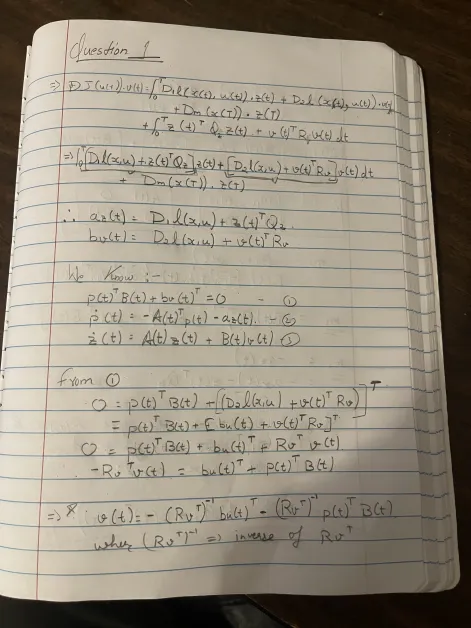 Question 1
=> DJ(u(t))·v(t) = ∫₀ᵀ D₁l(x(t), u(t))·z(t) + D₂l(x(t), u(t))·v(t)
+ Dm(x(T))·z(T)
+ ∫₀ᵀ z(t)ᵀ Q_z z(t) + v(t)ᵀ R_v v(t) dt
=> ∫₀ᵀ [D₁l(x,u) + z(t)ᵀQ_z] z(t) + [D₂l(x,u) + v(t)ᵀR_v] v(t) dt
+ Dm(x(T))·z(T)
∴ a_z(t) = D₁l(x,u) + z(t)ᵀQ_z
b_v(t) = D₂l(x,u) + v(t)ᵀR_v
We Know :-
p(t)ᵀB(t) + b_v(t)ᵀ = 0 - ①
ṗ(t) = -A(t)ᵀp(t) - a_z(t). - ②
ż(t) = A(t)z(t) + B(t)v(t) ③
From ①
0 = p(t)ᵀB(t) + [D₂l(x,u) + v(t)ᵀR_v]ᵀ
= p(t)ᵀB(t) + [b_u(t) + v(t)ᵀR_v]ᵀ
0 = p(t)ᵀB(t) + b_u(t)ᵀ + R_vᵀ v(t)
-R_vᵀ v(t) = b_u(t)ᵀ + p(t)ᵀB(t)
=> * v(t) = -(R_vᵀ)⁻¹ b_u(t)ᵀ - (R_vᵀ)⁻¹ p(t)ᵀB(t)
wher (R_vᵀ)⁻¹ => inverse of R_vᵀ